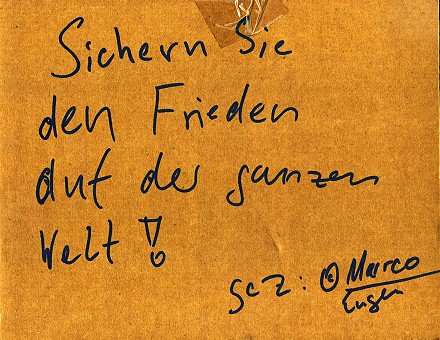 Sichern Sie
den Frieden
auf der ganzen
Welt!
gez: Marco
Eugen